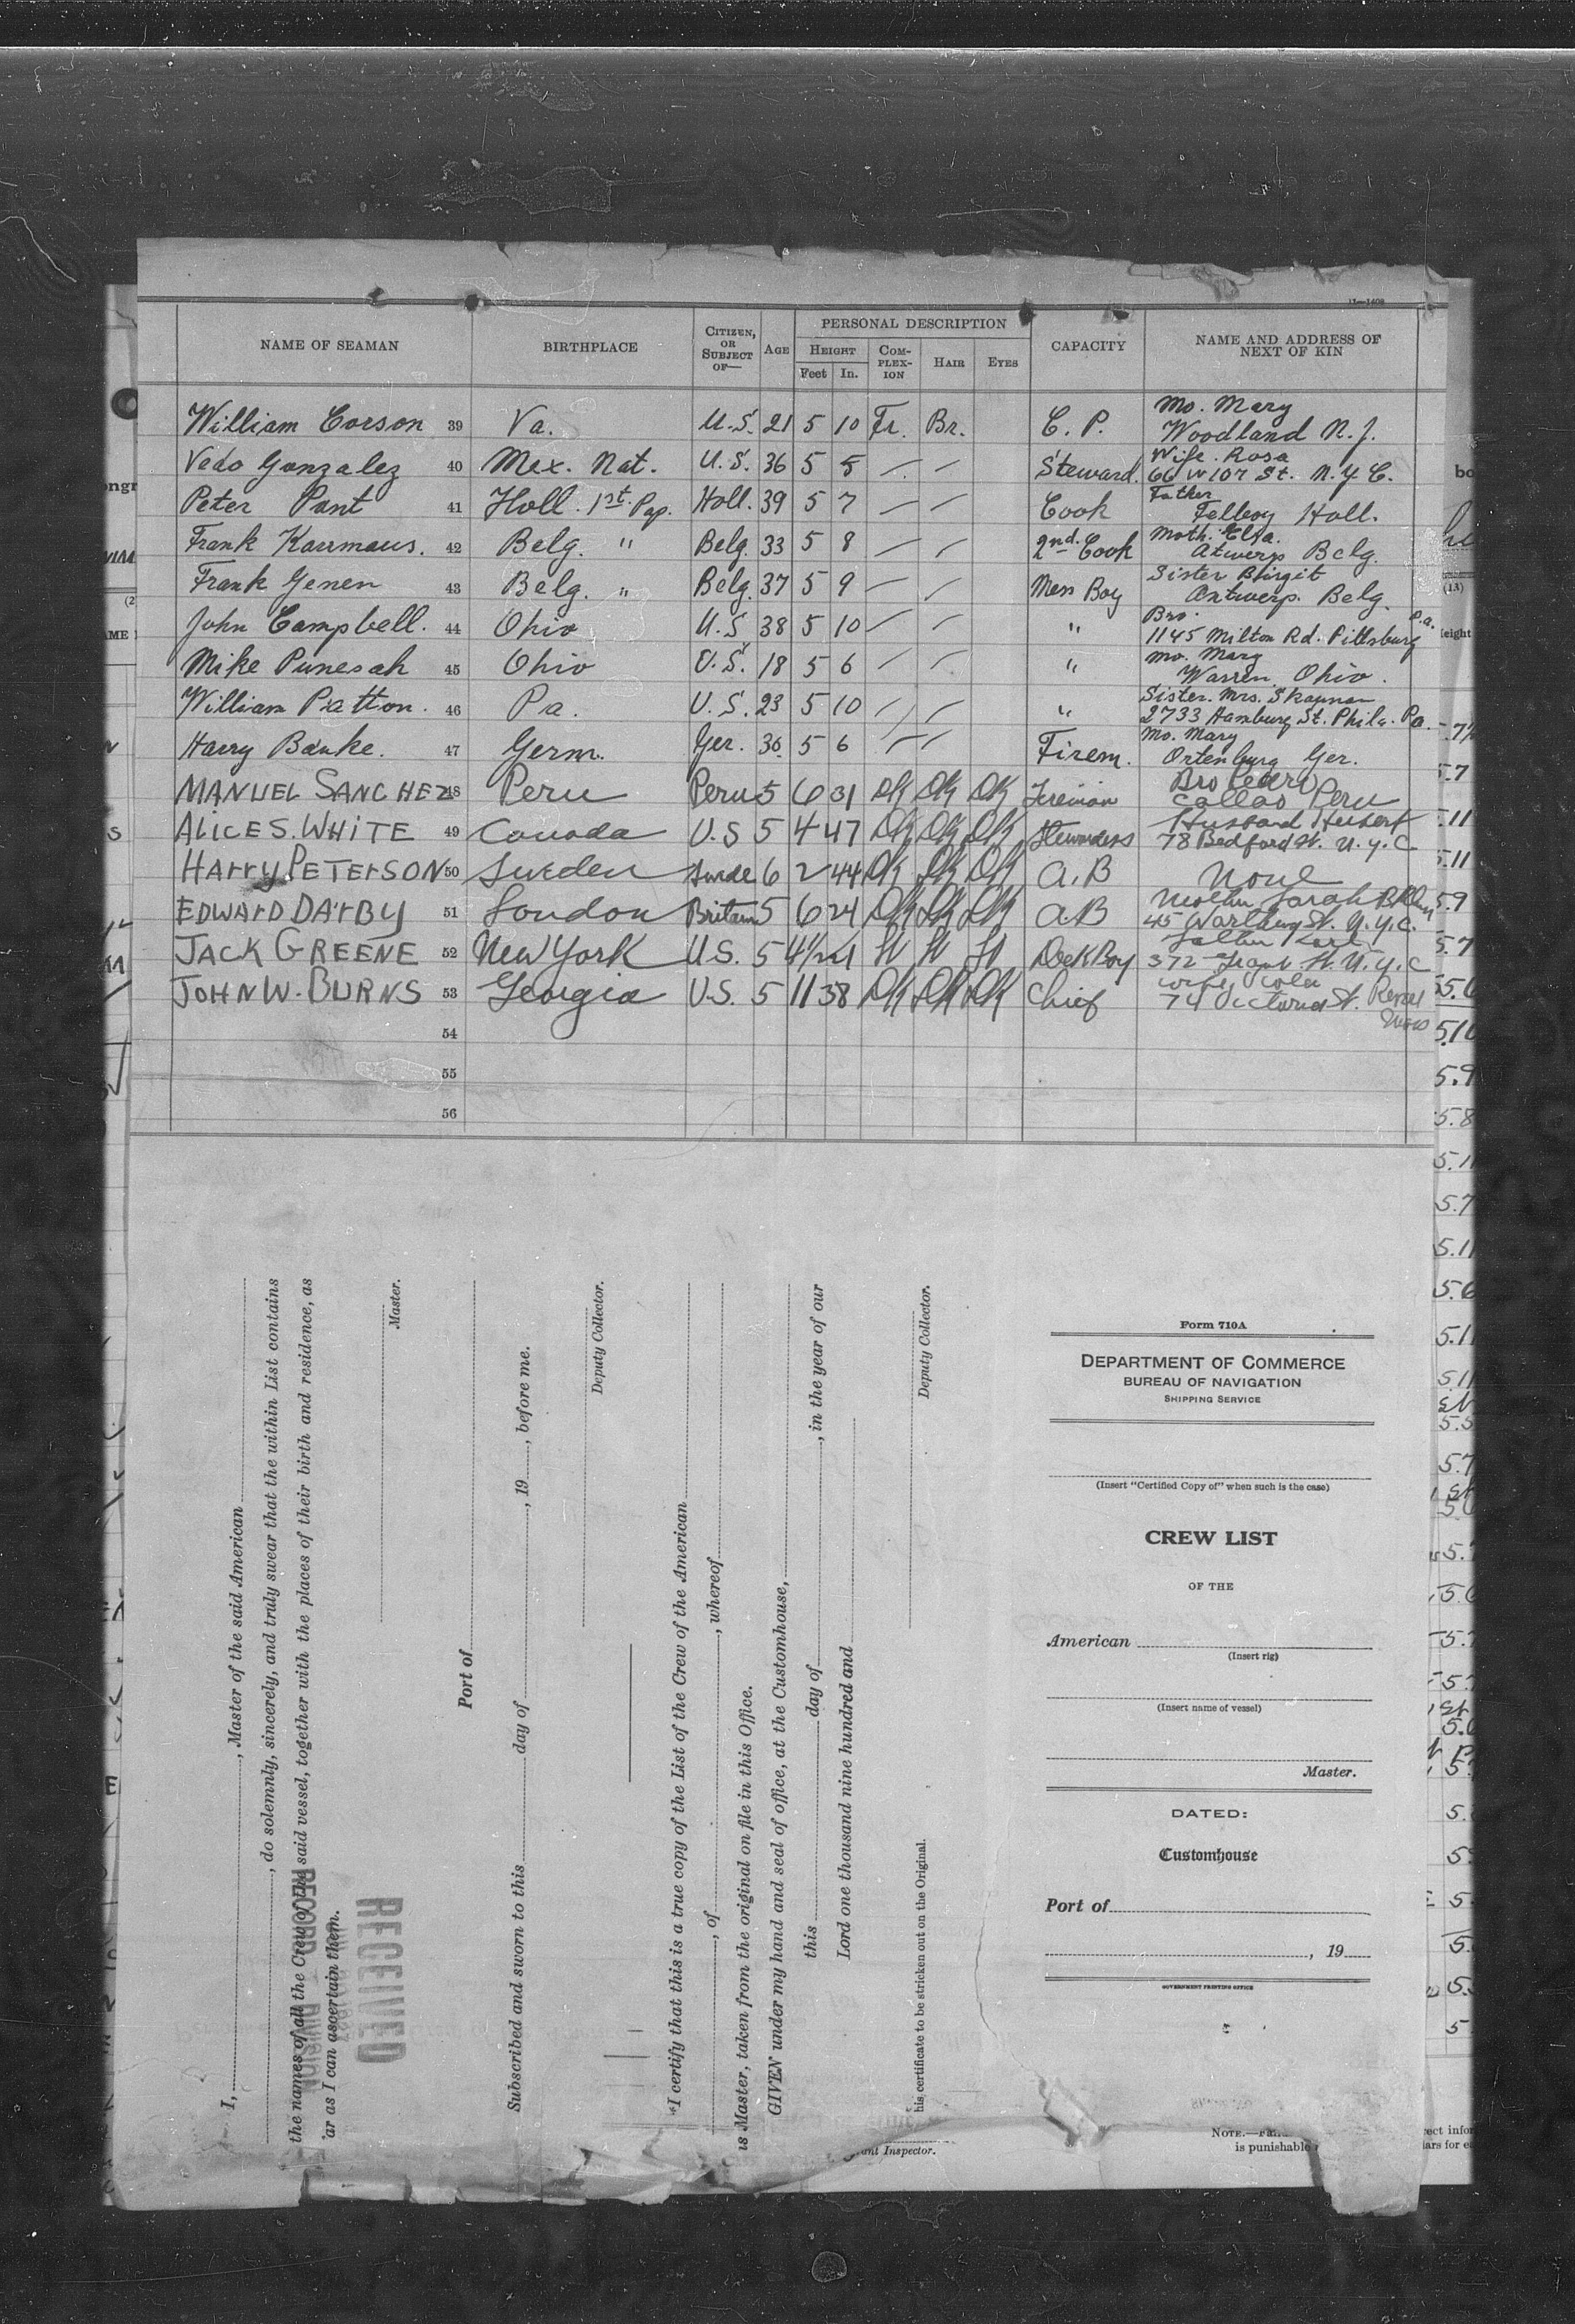 11—1408
NAME OF SEAMAN BIRTHPLACE CITIZEN, OR SUBJECT OF— AGE PERSONAL DESCRIPTION CAPACITY NAME AND ADDRESS OF NEXT OF KIN
HEIGHT COM-PLEX-ION HAIR EYES
Feet In.
Mo. Mary
William Corson 39 Va. U.S. 21 5 10 Fr. Br. C. P. Woodland N.J.
Wife. Rosa
Vedo Gonzalez 40 Mex. Nat. U.S. 36 5 5 — — Steward. 66 W 107 St. N.Y.C.
Father
Peter Pant 41 Holl. 1st. Pap. Holl. 39 5 7 — — Cook Holl.
Moth. Elfa.
Frank Karrmaus. 42 Belg. " Belg. 33 5 8 — — 2nd. Cook Atwerp Belg.
Sister Birgit
Frank Genen 43 Belg. " Belg. 37 5 9 — — Mess Boy Antwerp. Belg.
Bro.
John Campbell. 44 Ohio U.S 38 5 10 — — " 1145 Milton Rd. Pittsburg Pa.
Mo. Mary
Mike Punesah 45 Ohio U.S. 18 5 6 — — " Warren Ohio.
Sister. Mrs. Skapman
William Patton. 46 Pa. U.S. 23 5 10 — — " 2733 Hamburg St. Phila. Pa.
Mo. Mary
Harry Banke. 47 Germ. Ger. 36 5 6 — — Firem. Ortenburg Ger.
Bro Pedro
MANUEL SANCHEZ 48 Peru Peru 5 6 31 DK DK DK Fireman Callao Peru
Husband Hubert
ALICE S. WHITE 49 Canada U.S 5 4 47 DK DK DK Stewardess 78 Bedford St. N.Y.C
HARRY PETERSON 50 Sweden Swede 6 2 44 DK DK DK A.B None
Mother Sarah
EDWARD DARBY 51 London Britain 5 6 24 DK DK DK A.B 45 St. N.Y.C.
Father Karl
JACK GREENE 52 New York U.S. 5 4½ 21 Lt Lt Lt Deck Boy 372 St. N.Y.C
wife
JOHN W. BURNS 53 Georgia U.S. 5 11 38 DK DK DK Chief 74 St.
54
55
56
I, , Master of the said American
, do solemnly, sincerely, and truly swear that the within List contains
the names of all the Crew of the said vessel, together with the places of their birth and residence, as
far as I can ascertain them.
Master.
RECEIVED
RECORD DIVISION
Port of
Subscribed and sworn to this day of , 19 , before me.
Deputy Collector.
*I certify that this is a true copy of the List of the Crew of the American
, of , whereof
is Master, taken from the original on file in this Office.
GIVEN under my hand and seal of office, at the Customhouse,
this day of , in the year of our
Lord one thousand nine hundred and
Deputy Collector.
his certificate to be stricken out on the Original.
Form 710A
DEPARTMENT OF COMMERCE
BUREAU OF NAVIGATION
SHIPPING SERVICE
(Insert "Certified Copy of" when such is the case)
CREW LIST
OF THE
American
(Insert rig)
(Insert name of vessel)
Master.
DATED:
Customhouse
Port of
, 19
GOVERNMENT PRINTING OFFICE
Inspector.
NOTE.—
is punishable